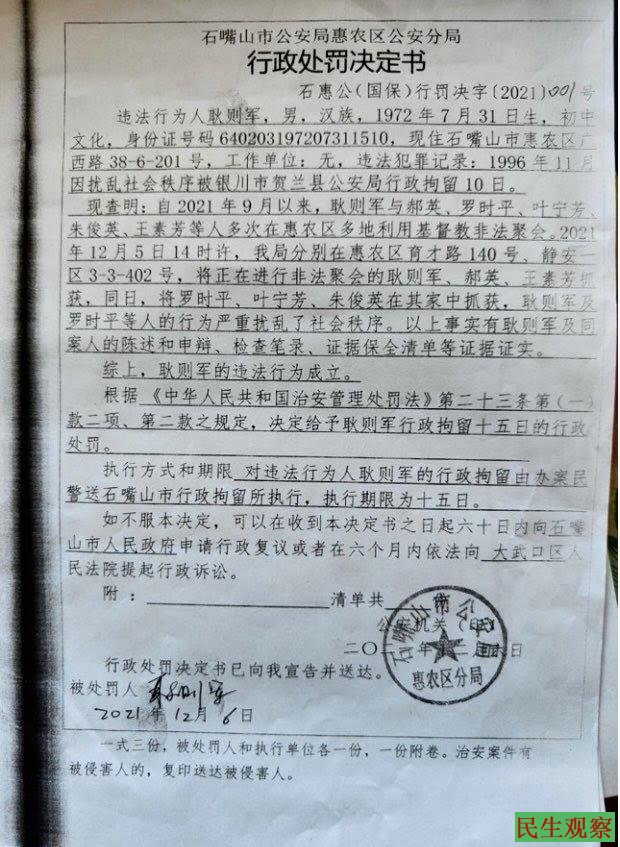 石嘴山市公安局惠农区公安分局
行政处罚决定书
石惠公(国保)行罚决字〔2021〕001号
违法行为人耿则军，男，汉族，1972年7月31日生，初中
文化，身份证号码640203197207311510，现住石嘴山市惠农区广
西路38-6-201号，工作单位：无，违法犯罪记录：1996年11月
因扰乱社会秩序被银川市贺兰县公安局行政拘留10日。
现查明：自2021年9月以来，耿则军与郝英、罗时平、叶宁芳、
朱俊英、王素芳等人多次在惠农区多地利用基督教非法聚会。2021
年12月5日14时许，我局分别在惠农区育才路140号、静安二
区3-3-402号，将正在进行非法聚会的耿则军、郝英、王素芳抓
获，同日，将罗时平、叶宁芳、朱俊英在其家中抓获，耿则军及
罗时平等人的行为严重扰乱了社会秩序。以上事实有耿则军及同
案人的陈述和申辩、检查笔录、证据保全清单等证据证实。
综上，耿则军的违法行为成立。
根据《中华人民共和国治安管理处罚法》第二十三条第(一)
款二项、第二款之规定，决定给予耿则军行政拘留十五日的行政
处罚。
执行方式和期限 对违法行为人耿则军的行政拘留由办案民
警送石嘴山市行政拘留所执行，执行期限为十五日。
如不服本决定，可以在收到本决定书之日起六十日内向石嘴
山市人民政府申请行政复议或者在六个月内依法向 大武口区人
民法院提起行政诉讼。
附： 清单共
公安机关
石嘴山市公安局
惠农区分局
二〇二
行政处罚决定书已向我宣告并送达。
被处罚人 耿则军
2021年12月6日
一式三份，被处罚人和执行单位各一份，一份附卷。治安案件有
被侵害人的，复印送达被侵害人。
民生观察